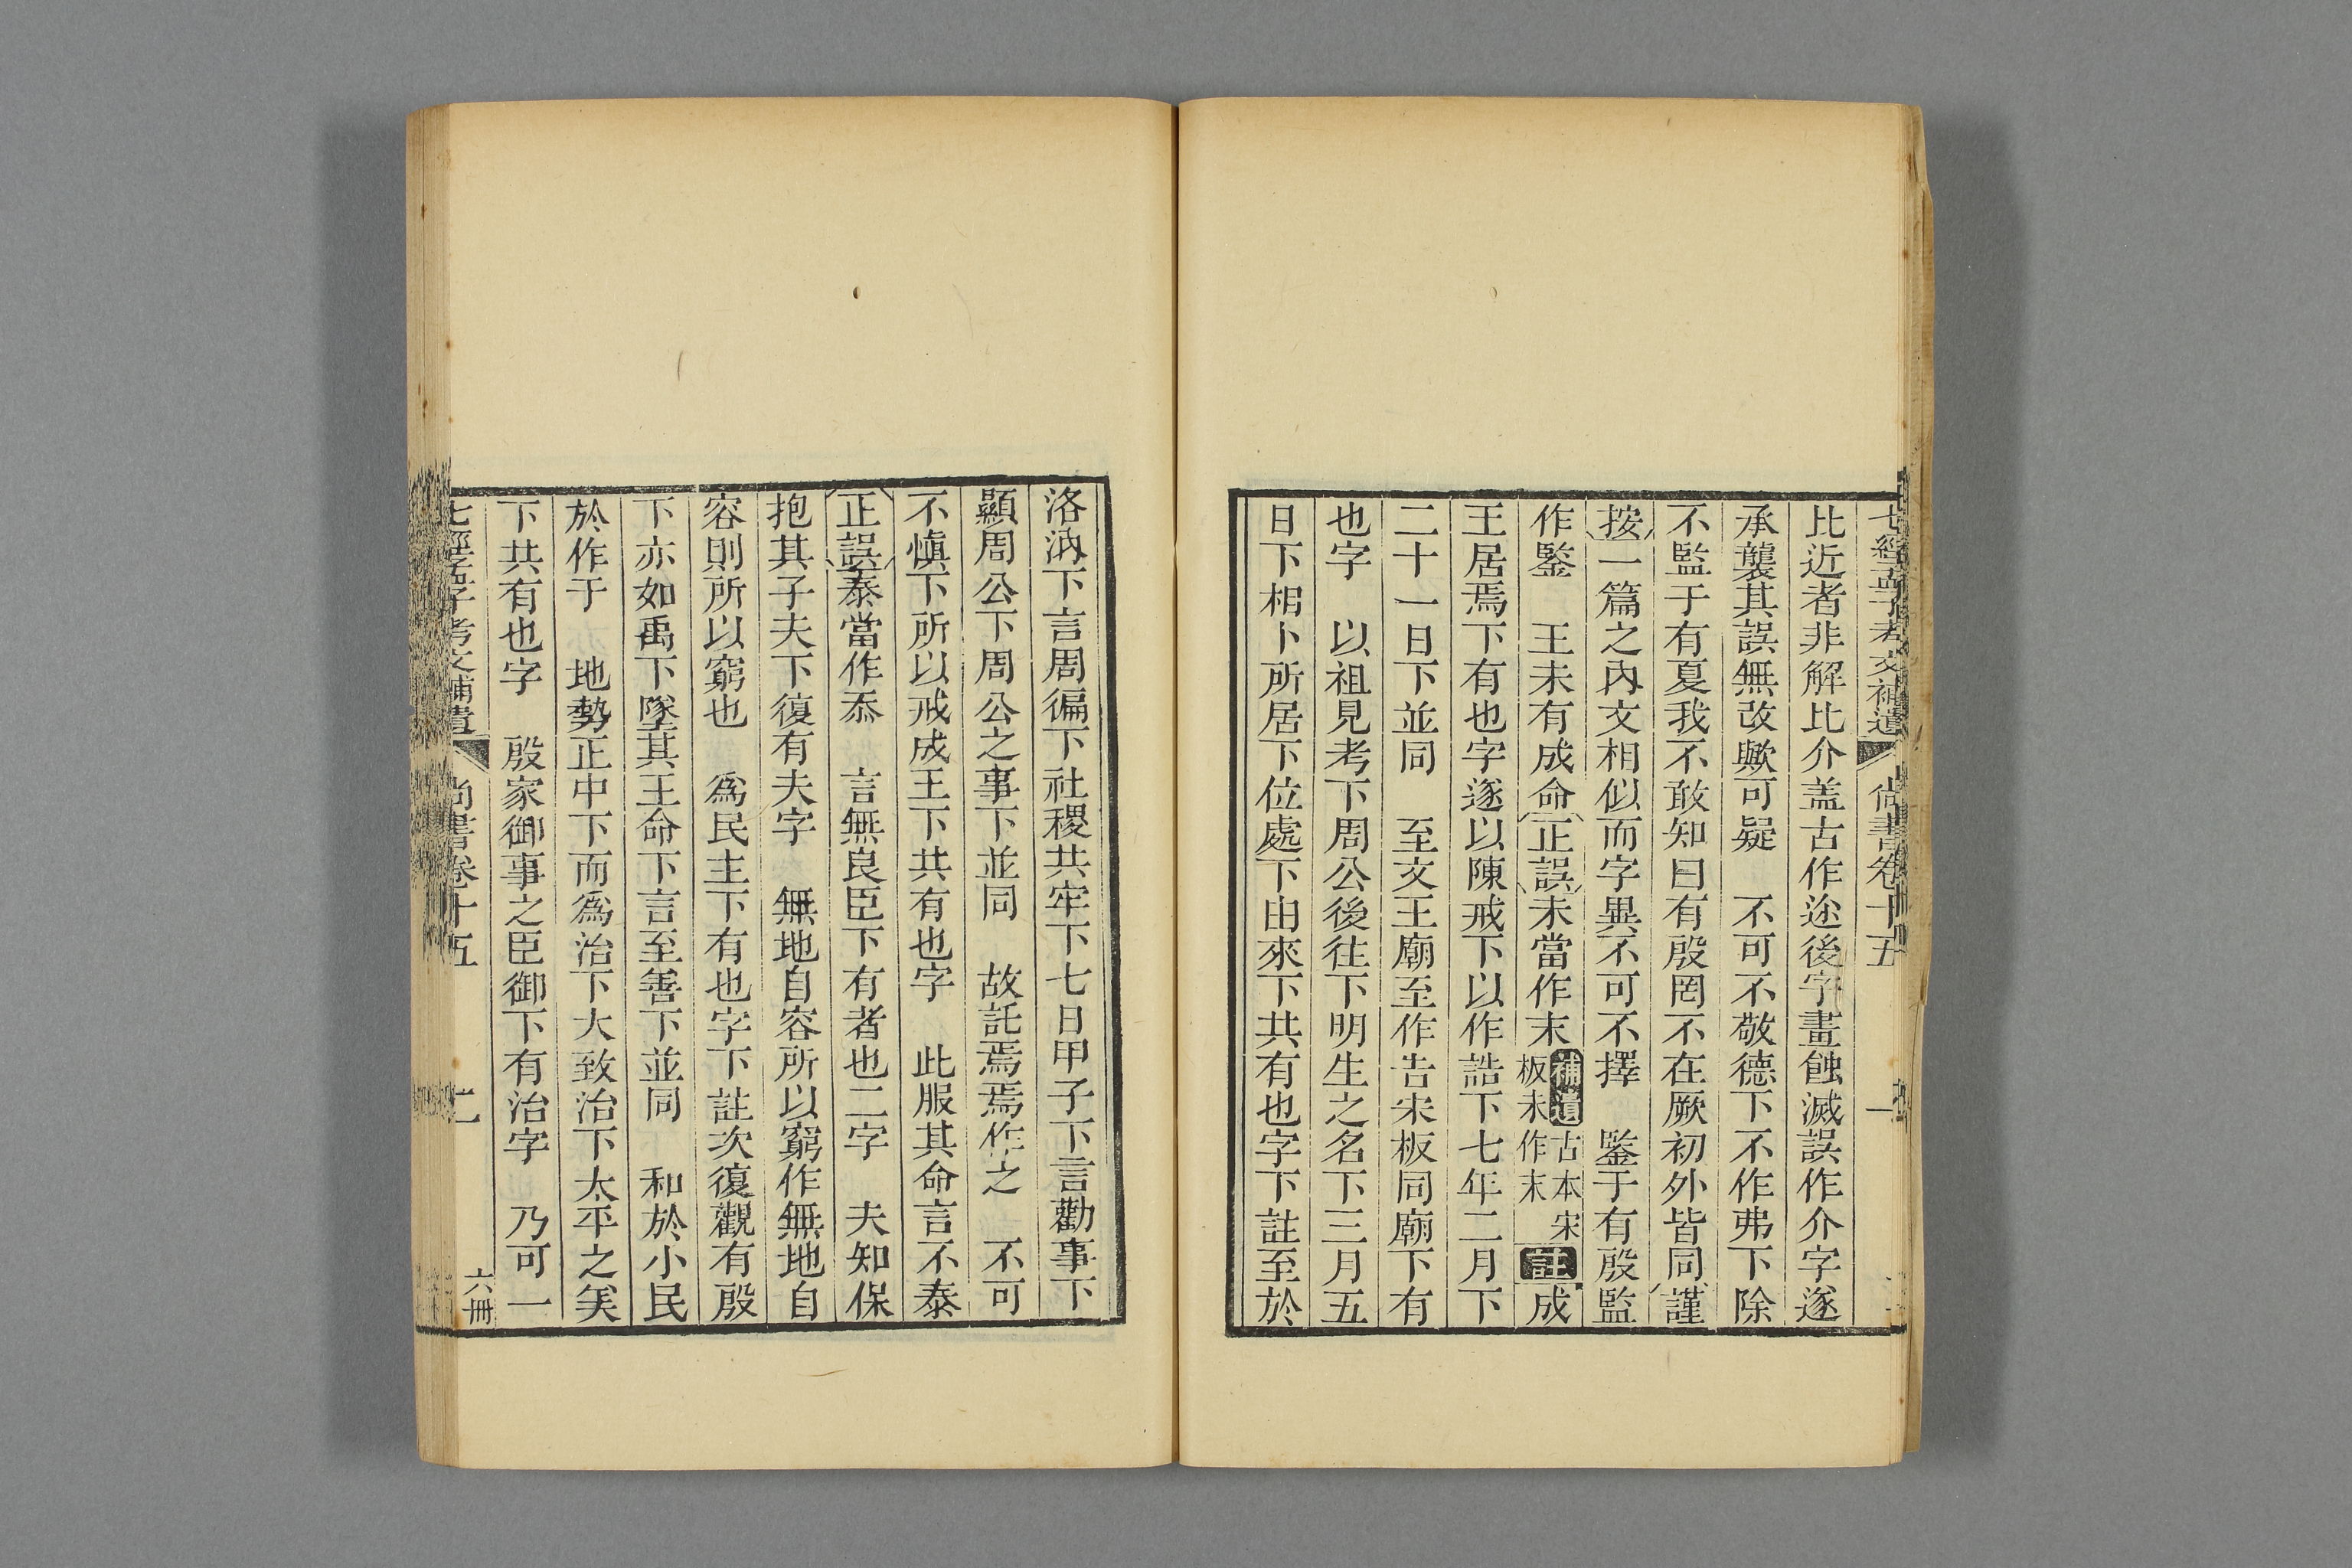 七經孟子考文補遺 尚書卷十五 一
比近者非解比介盖古作迩後字畫蝕滅誤作介字遂
承襲其誤無改歟可疑 不可不敬德下不作弗下除
不監于有夏我不敢知曰有殷罔不在厥初外皆同謹
按一篇之內文相似而字異不可不擇 鑒于有殷監
作鑒 王未有成命正誤未當作末補遺古本宋板未作末註成
王居焉下有也字遂以陳戒下以作誥下七年二月下
二十一日下並同 至文王廟至作告宋板同廟下有
也字 以祖見考下周公後往下明生之名下三月五
日下相卜所居下位處下由來下共有也字下註至於
洛汭下言周徧下社稷共牢下七日甲子下言勸事下
顯周公下周公之事下並同 故託焉焉作之 不可
不愼下所以戒成王下共有也字 此服其命言不泰
正誤泰當作忝 言無良臣下有者也二字 夫知保
抱其子夫下復有夫字 無地自容所以窮作無地自
容則所以窮也 爲民主下有也字下註次復觀有殷
下亦如禹下墜其王命下言至善下並同 和於小民
於作于 地勢正中下而爲治下大致治下太平之矣
下共有也字 殷家御事之臣御下有治字 乃可一
七經孟子考文補遺 尚書卷十五 二 六冊